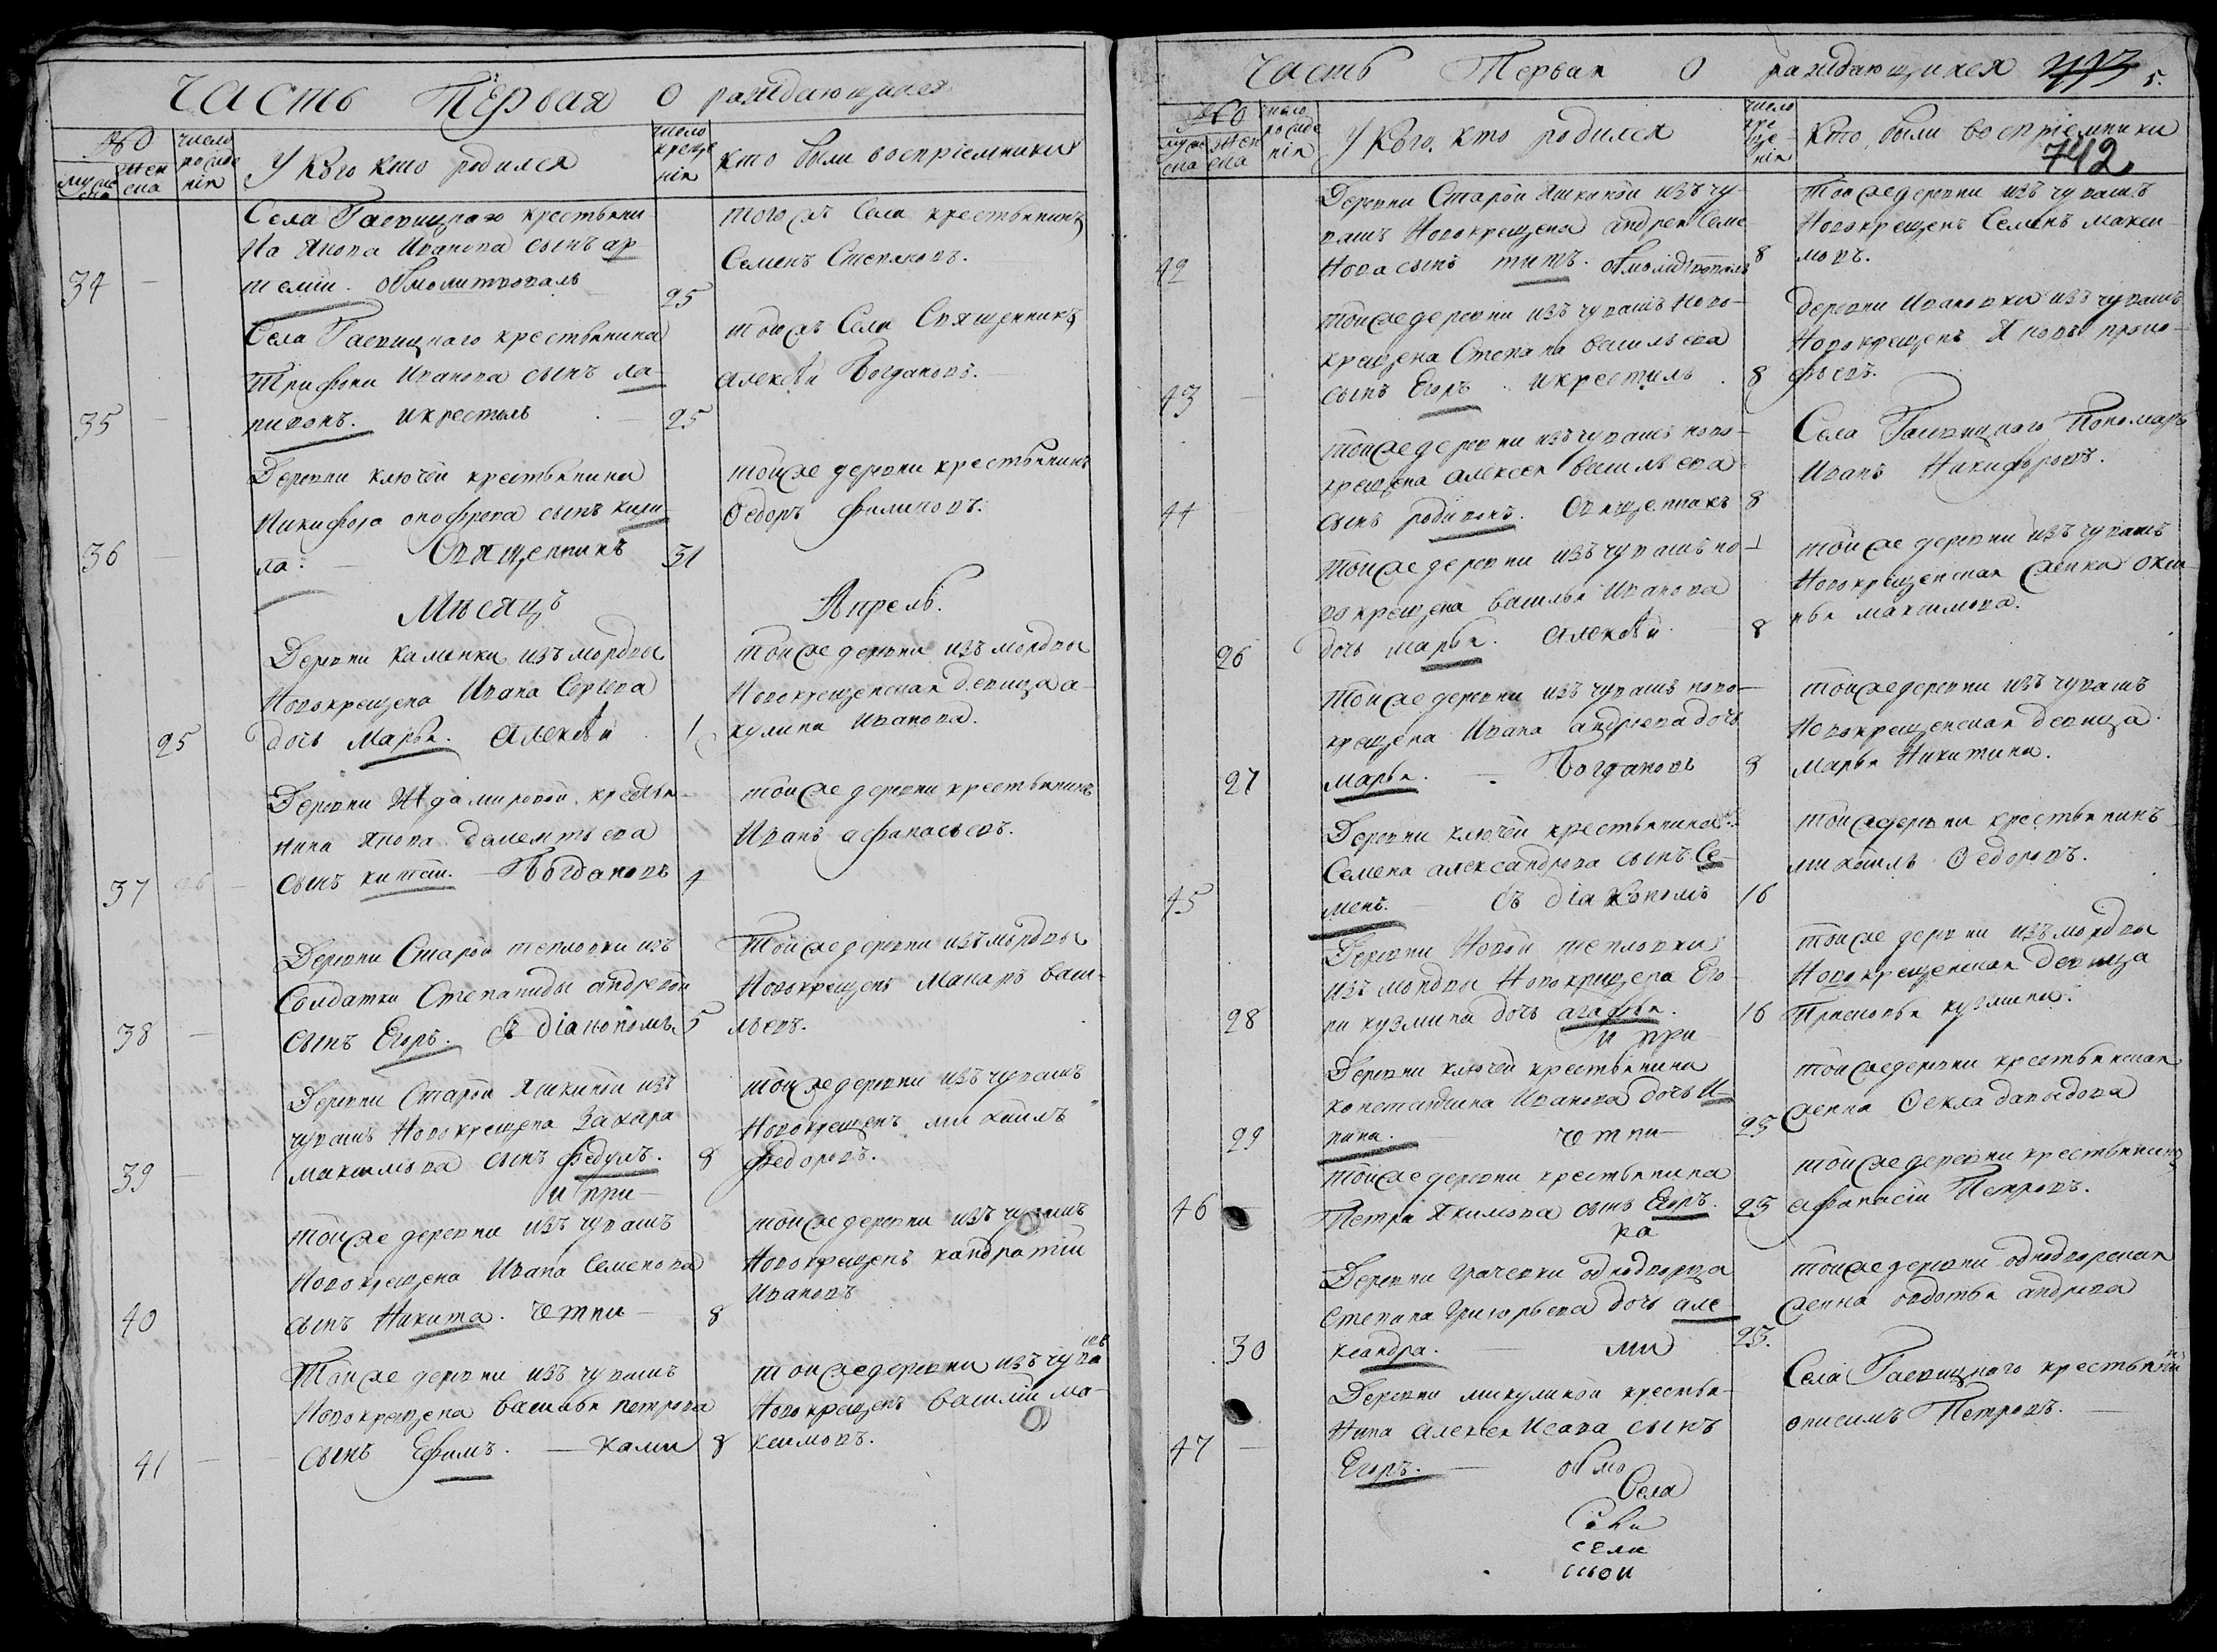 Часть Первая О раждающихся
№
число рожде нія
У Кого кто родился
число креще нія
кто были воспріемники
муже ска
жен ска
34
Села Гаврицкаго крестьяни
На Якова Иванова сынъ ар-
темій. обмолитвовалъ
25
тогожъ Села крестьянинъ
Семенъ Степановъ.
35
Села Гаврицкаго крестьянина
Трифона Иванова сынъ ла-
ривонъ. икрестилъ
25
тогожъ Села Священникъ
Алексѣй Богдановъ.
36
Деревни ключей крестьянина
Никифора онофрева сынъ кири-
ла. Священникъ
31
тойже деревни крестьянинъ
Ѳедоръ филиповъ.
Мѣсяцъ Апрель.
25
Деревни Каменки изъ мордвы
Новокрещена Ивана Сергева
дочь Марья. Алексѣй
1
тойже деревни изъ мордвы
Новокрещенская девица а-
кулина Иванова.
37
Деревни Ждамировой крестья-
нина Якова дементьева
сынъ антай. Богдановъ
4
тойже деревни крестьянинъ
Иванъ афанасьевъ.
38
Деревни Старой тепловки изъ
Солдатки Степаниды андревой
сынъ Егоръ. Съ діакономъ
5
Тойже деревни изъ мордвы
Новокрещенъ Макаръ васи-
льевъ.
39
Деревни Старой Яшкиной изъ
чувашъ Новокрещена Захара
максимова сынъ федулъ.
и при
8
тойже деревни изъ чувашъ
Новокрещенъ михаилъ
федоровъ.
40
тойже деревни изъ чувашъ
Новокрещена Ивана Семенова
сынъ Никита. четни
8
тойже деревни изъ чувашъ
Новокрещенъ кандратій
Ивановъ
41
Тойже деревни изъ чувашъ
Новокрещена василья петрова
сынъ Ефимъ. ками
8
тойже деревни изъ чува шъ
Новокрещенъ василій ма-
ксимовъ.
Часть Первая О раждающихся 5.
742
№
муже ска
жен ска
число рожде нія
У Кого кто родился
число кре ще нія
Кто были воспріемники
42
Деревни Старой Яшкиной изъ чу-
вашъ Новокрещена андрея Семе-
нова сынъ титъ. обмолитвовалъ
8
Тойже деревни изъ чувашъ
Новокрещенъ Семенъ макси-
мовъ.
43
тойже деревни изъ чувашъ Ново-
крещена Степана васильева
сынъ Егоръ. икрестилъ
8
деревни Ивановки изъ чувашъ
Новокрещенъ Яковъ проко-
фьевъ.
44
тойже деревни изъ чувашъ ново-
крещена алексея васильева
сынъ родивонъ. Священникъ
8
Села Гаврицкаго Пономарь
Иванъ Никифоровъ.
26
тойже деревни изъ чувашъ но-
вокрещена василья Иванова
дочь марья. Алексѣй
8
тойже деревни изъ чувашъ
Новокрещенская женка окси-
нья максимова.
27
тойже деревни изъ чувашъ ново-
крещена Ивана андреева дочь
марья. Богдановъ
8
тойже деревни изъ чувашъ
Новокрещенская девица
марья Никитина.
45
Деревни ключей крестьянина
Семена александрова сынъ Се-
менъ. съ діакономъ
16
тойже деревни крестьянинъ
михаилъ Ѳедоровъ.
28
Деревни Новой тепловки
изъ мордвы Новокрищена Его-
ра кузмина дочь агафья.
и при
16
тойже деревни изъ мордвы
Новокрещенская девица
Прасковья кузмина.
29
Деревни ключей крестьянина
константина Иванова дочь И-
рина. четни
23
тойже деревни крестьянская
женка Ѳекла давыдова
46
тойже деревни крестьянина
Петра Якимова сынъ Егоръ.
ка
23
тойже деревни крестьянинъ
афанасій Петровъ.
30
Деревни Грачевки однодворца
степана Григорьева дочь але-
ксандра. ми
23.
тойже деревни однодворская
женка авдотья андрева
47
Деревни микулиной крестья-
Нина алексея Исаева сынъ
Егоръ. обмо
Села Гаврицкаго крестьянинъ
анисимъ Петровъ.
Села